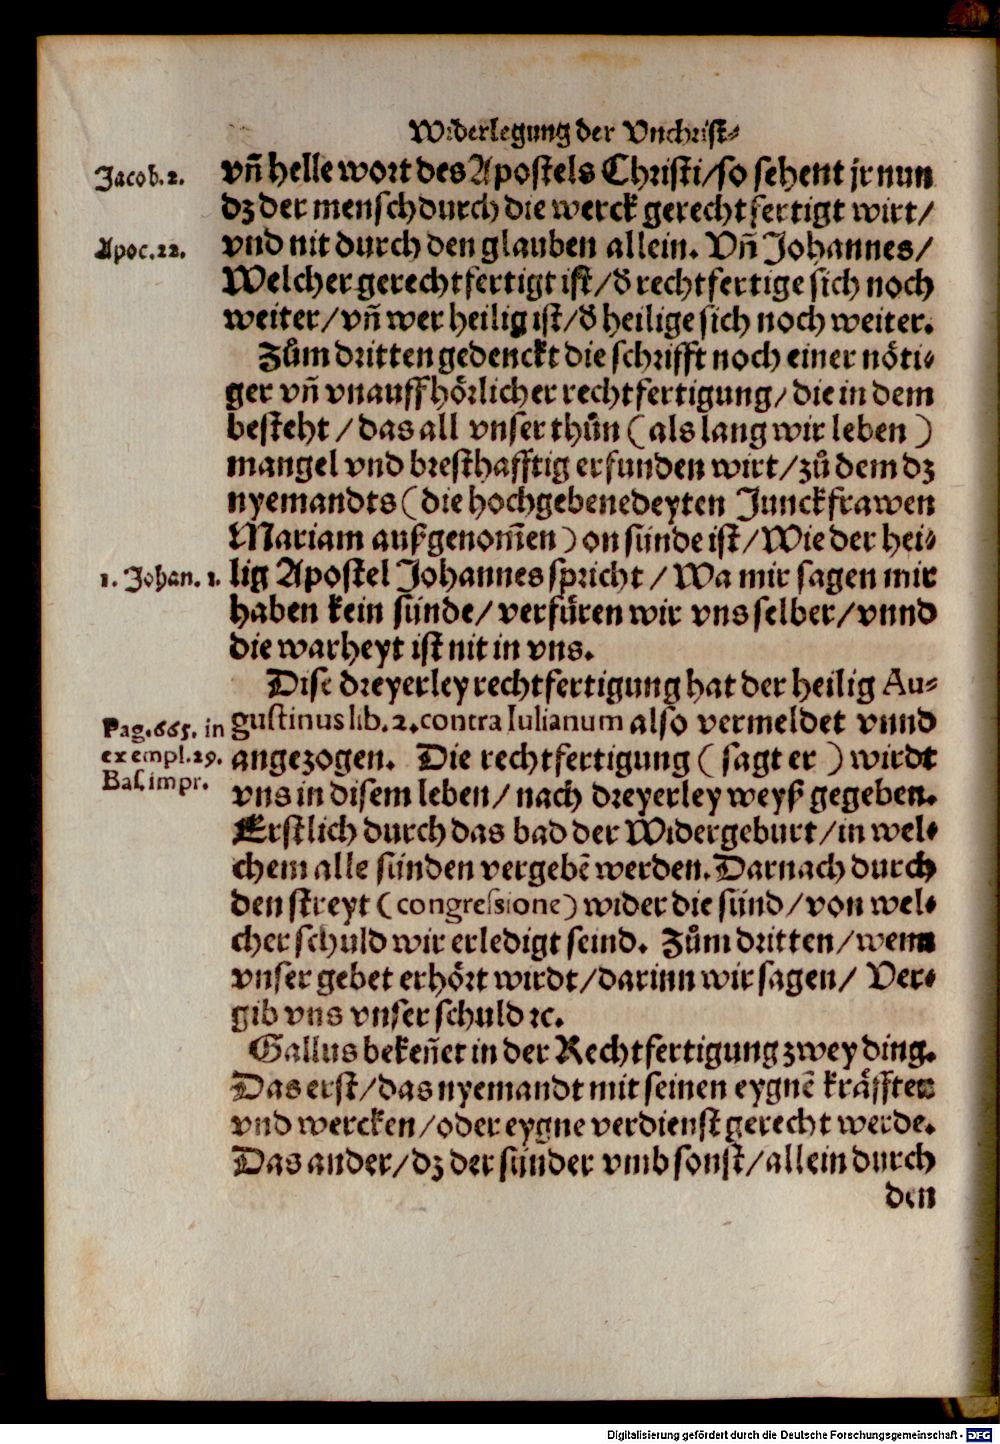 Widerlegung der Vnchrist⸗
Jacob.2.
vñ helle wort des Apostels Christi/so sehent jr nun
dz der mensch durch die werck gerechtfertigt wirt/
Apoc.22.
vnd nit durch den glauben allein. Vñ Johannes/
Welcher gerechtfertigt ist/d̕ rechtfertige sich noch
weiter/vñ wer heilig ist/d̕ heilige sich noch weiter.
Zům dritten gedenckt die schrifft noch einer nöti⸗
ger vñ vnauffhörlicher rechtfertigung/die in dem
besteht/das all vnser thůn (als lang wir leben)
mangel vnd bresthafftig erfunden wirt/zů dem dz
nyemandts (die hochgebenedeyten Junckfrawen
Mariam außgenom̃en) on sünde ist/Wie der hei⸗
1. Johan. 1.
lig Apostel Johannes spricht/Wa mir sagen mir
haben kein sünde/verfüren wir vns selber/vnnd
die warheyt ist nit in vns.
Dise dreyerley rechtfertigung hat der heilig Au⸗
Pag.665. in
gustinus lib.2.contra Iulianum also vermeldet vnnd
exempl.29.
angezogen. Die rechtfertigung (sagt er) wirdt
Bas.impr.
vns in disem leben/nach dreyerley weyß gegeben.
Erstlich durch das bad der Widergeburt/in wel⸗
chem alle sünden vergebẽ werden. Darnach durch
den streyt (congressione) wider die sünd/von wel⸗
cher schuld wir erledigt seind. Zům dritten/wenn
vnser gebet erhört wirdt/darinn wir sagen/Ver⸗
gib vns vnser schuld ꝛc.
Gallus bekeñet in der Rechtfertigung zwey ding.
Das erst/das nyemandt mit seinen eygnẽ kräfften
vnd wercken/oder eygne verdienst gerecht werde.
Das ander/dz der sünder vmb sonst/allein durch
den
Digitalisierung gefördert durch die Deutsche Forschungsgemeinschaft - DFG